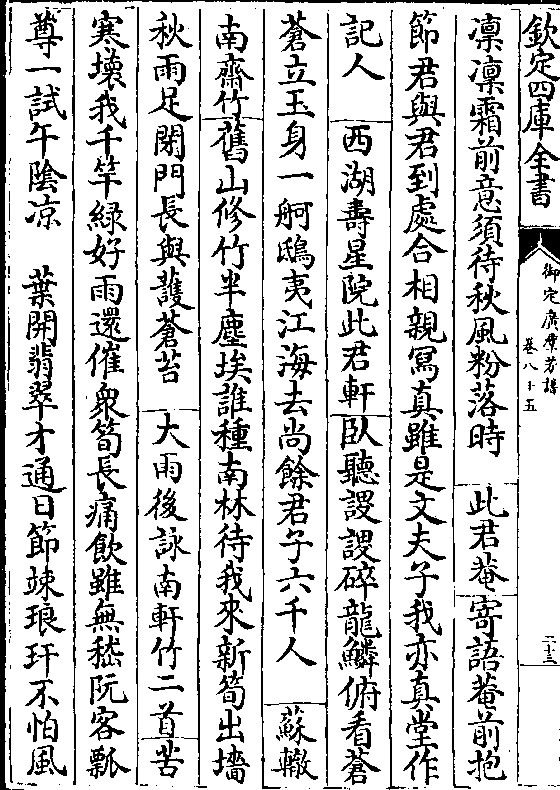 欽定四庫全書
御定廣羣芳譜
卷八十五
二十三
凛凛霜前意須待秋風粉落時　此君菴寄語菴前抱
節君與君到處合相親冩真雖是文夫子我亦真堂作
記人　西湖壽星院此君軒卧聽謖謖碎龍鱗俯看蒼
蒼立玉身一舸鴟夷江海去尚餘君子六千人　蘇轍
南齋竹舊山修竹半塵埃誰種南林待我來新筍出墻
秋雨足閉門長與䕶蒼苔　大雨後詠南軒竹二首苦
寒壞我千竿緑好雨還催衆筍長痛飲雖無嵇阮客瓢
尊一試午隂凉　葉開翡翠才通日節竦琅玕不怕風